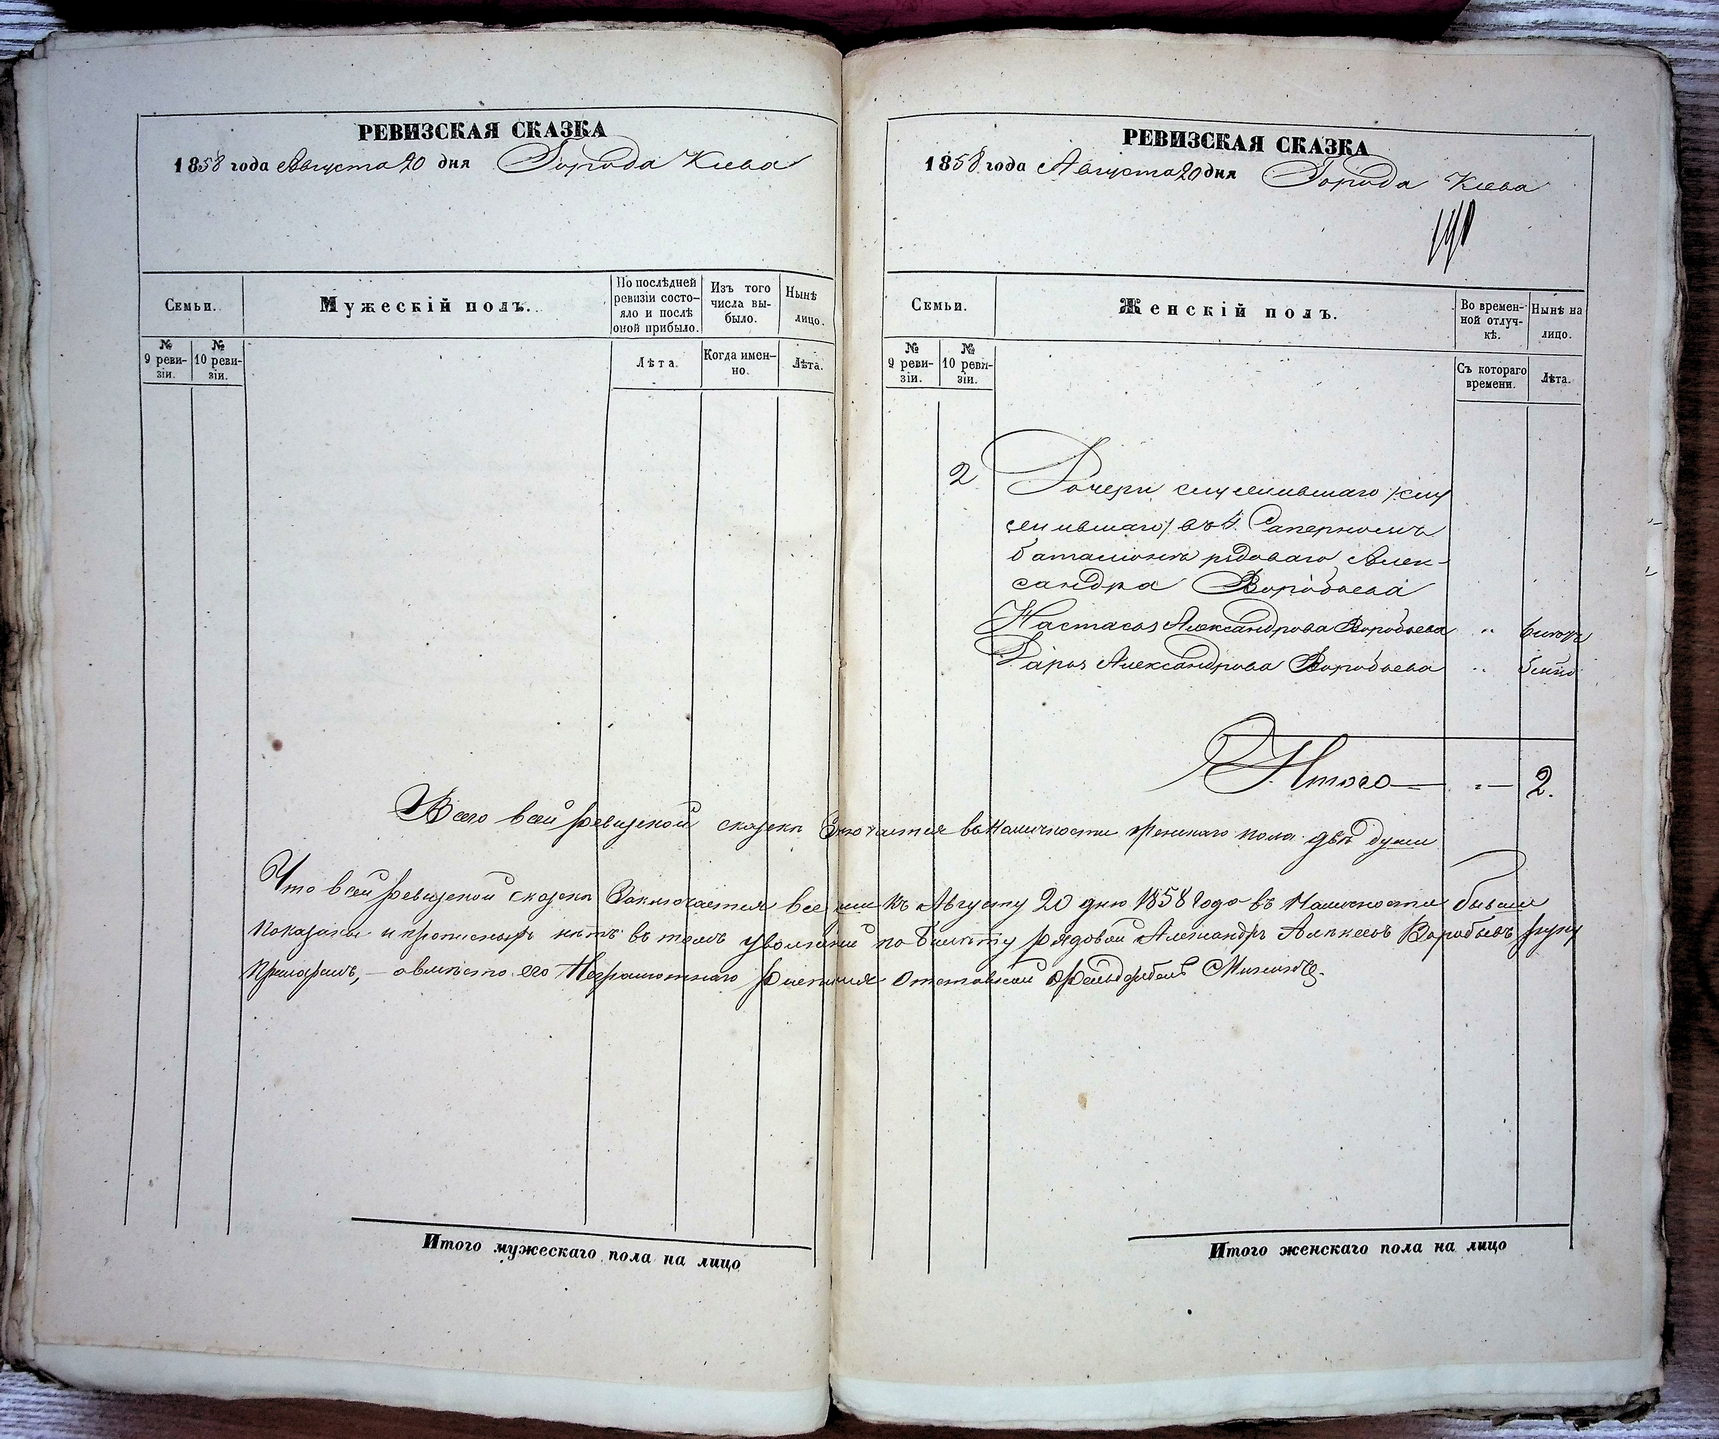 РЕВИЗСКАЯ СКАЗКА
1858 года Августа 20 дня Города Кіева
Семьи.
Мужескій полъ.
По послѣдней ревизіи состояло и послѣ оной прибыло.
Изъ того числа выбыло.
Нынѣ лицо.
№ 9 ревизіи.
№ 10 ревизіи.
Лѣта.
Когда именно.
Лѣта.
РЕВИЗСКАЯ СКАЗКА
1858 года Августа 20 дня Города Кіева
Семьи.
Женскій полъ.
Во временной отлучкѣ.
Нынѣ на лицо.
№ 9 ревизіи.
№ 10 ревизіи.
Съ котораго времени.
Лѣта.
2
Дочери
въ 4. Саперномъ
баталіонѣ рядоваго Алек-
сандра Воробьева
Настасья Александрова Воробьева "
Дарья Александрова Воробьева "
Итого — " — 2.
Всего в сей ревизской сказки Заключается въ Наличности женскаго пола двѣ души
Что в сей ревизской сказки Заключается все къ Августу 20 дню 1858 Года въ Наличности бывшие
показаны и прописныхъ нѣтъ в томъ уволенный по билету рядовой Александръ Алексѣевъ Воробьевъ руку
приложилъ, — а вмѣсто его Неграмотнаго росписался Отставной Фельдфебель
Итого мужескаго пола на лицо
Итого женскаго пола на лицо